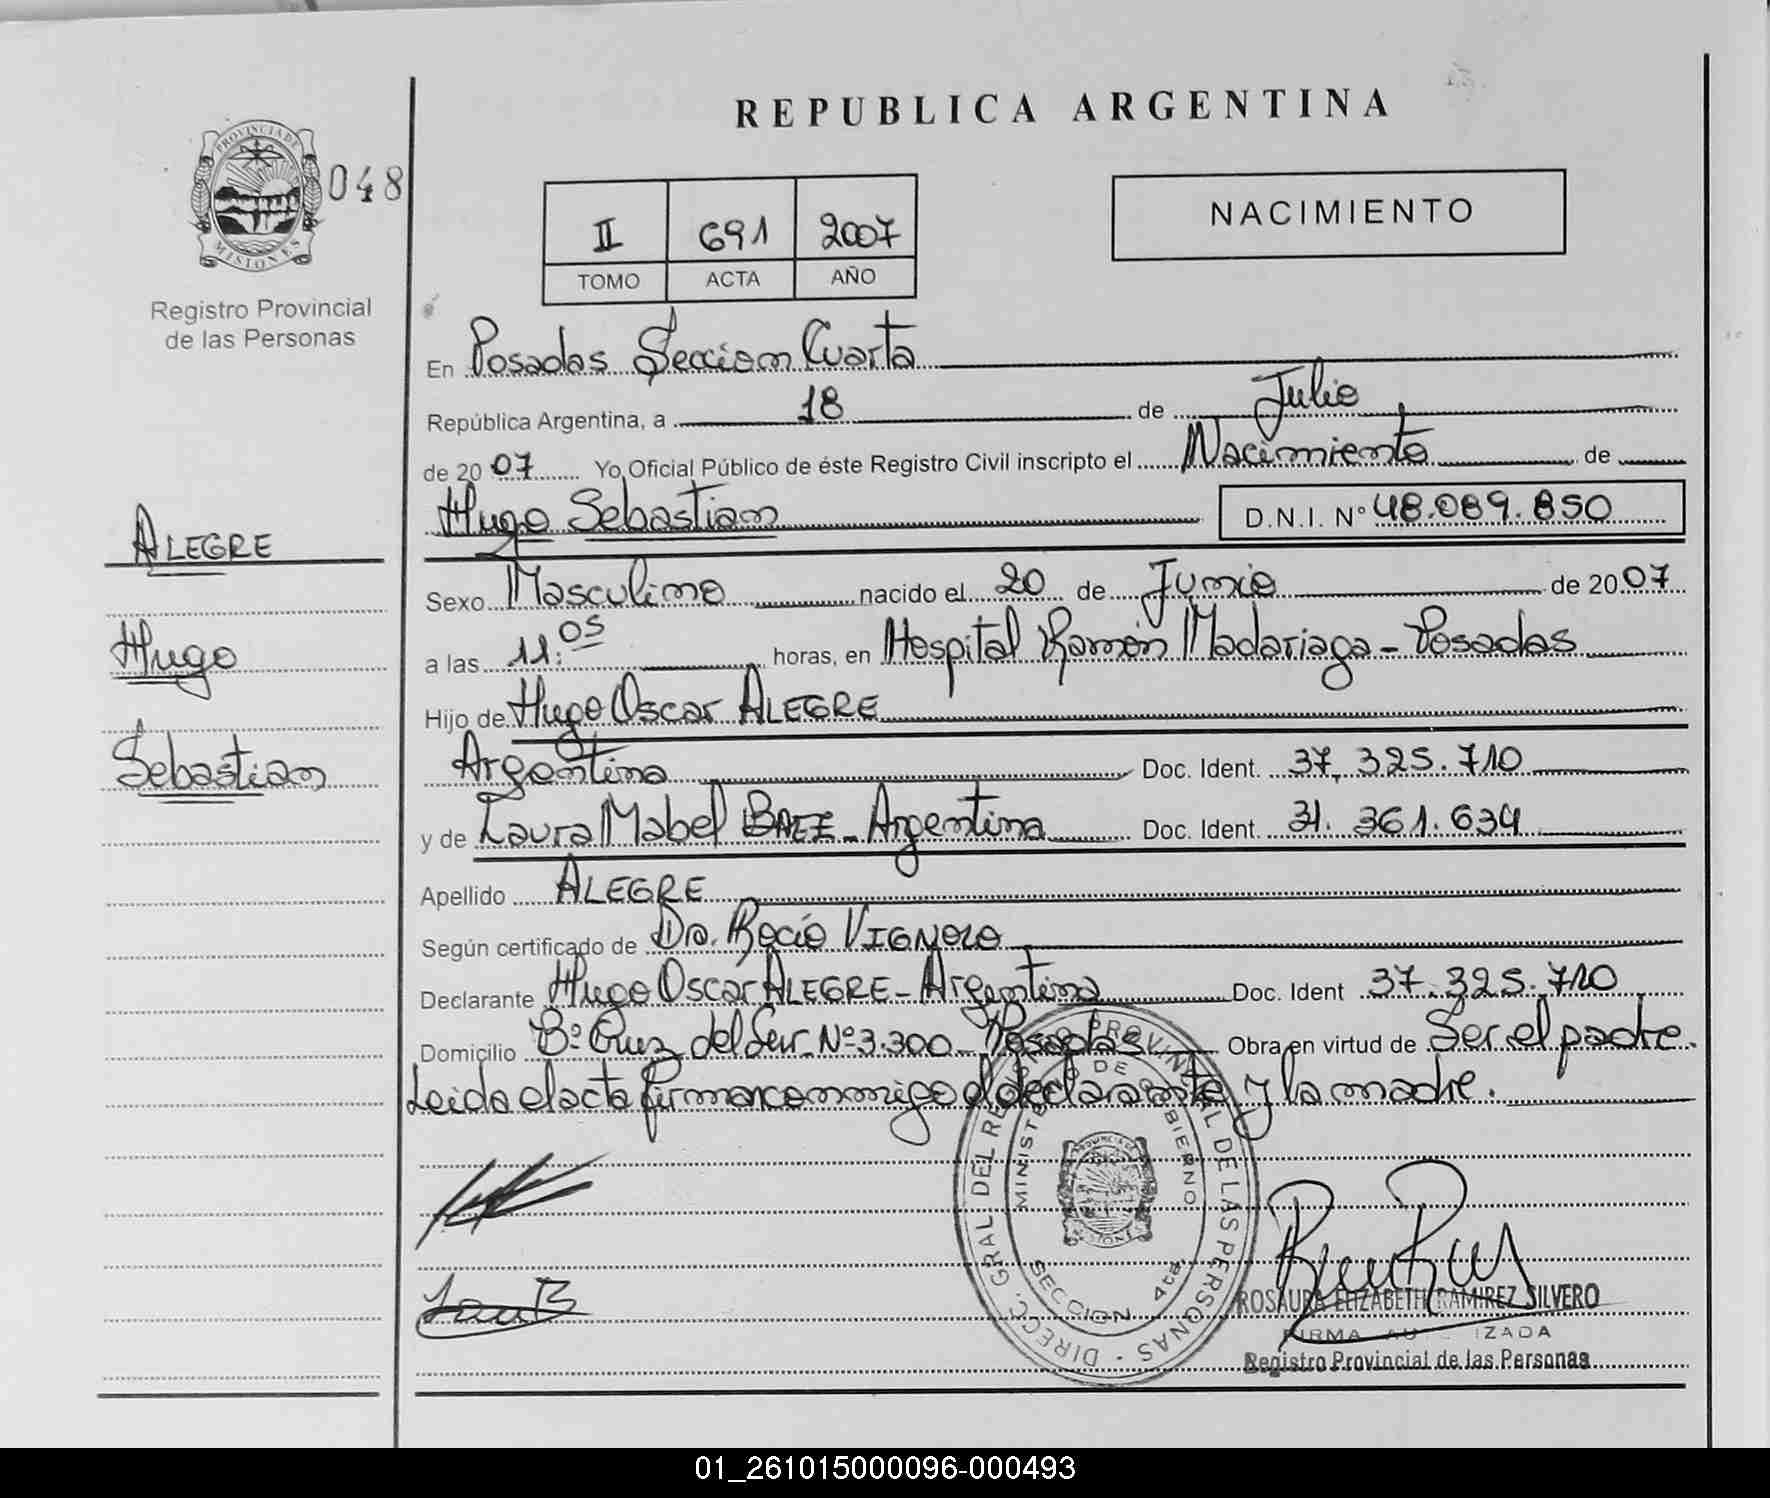 REPUBLICA ARGENTINA
PROVINCIA DE
MISIONES
048
Registro Provincial
de las Personas
II 691 2007
TOMO ACTA AÑO
NACIMIENTO
En Posadas Seccion Cuarta
República Argentina, a 18 de Julio
de 2007 Yo Oficial Público de éste Registro Civil inscripto el Nacimiento de
Hugo Sebastian D.N.I. Nº 48.089.850
ALEGRE
Hugo
Sebastian
Sexo Masculino nacido el 20 de Junio de 2007
a las 11:05 horas, en Hospital Ramón Madariaga - Posadas
Hijo de Hugo Oscar ALEGRE
Argentina Doc. Ident. 37.325.710
y de Laura Mabel BAEZ - Argentina Doc. Ident. 31.361.634
Apellido ALEGRE
Según certificado de Dra. Rocío VIGNOLO
Declarante Hugo Oscar ALEGRE - Argentina Doc. Ident 37.325.710
Domicilio Bº Cruz del Sur Nº 3.300 Posadas Obra en virtud de Ser el padre.
Leida el acta firman conmigo el declarante y la madre.
DIRECC. GRAL DEL REGISTRO PROVINCIAL DE LAS PERSONAS
MINISTERIO DE GOBIERNO
SECCION 4ta
ROSAURA ELIZABETH RAMIREZ SILVERO
FIRMA AUTORIZADA
Registro Provincial de las Personas
01_261015000096-000493